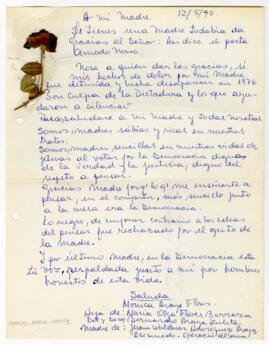 A mi Madre. 12/5/90.
Si tienes una Madre todabia da
Gracias al Señor: asi dice el poeta
Amado Nervo.
Nose a quien dar las gracias, si
más hechos de dolor por mi Madre
que detenida y hecha desaparecer en 1976
Son culpa de la Dictadura y los que ayu-
daron a silenciar
Hoy saludare a mi Madre y todas nosotras
Somos, madres sabias y ricas en nuestros
tratos.
Somos, madres sencillas en nuestras vidas
al votar por la Democracia dignas
de la verdad y la justicia, digno del
respeto a pensar.
Gracias Madre porque me enseñaste a
pensar, en el compartir, más sencillo junto
a la mesa era la Democracia.
Lo negro, de contrario a las ideas
del pensar que rechazado por el grito de
la Madre.
Y por último Madre, en la Democracia esta
tu voz, respaldada junto a mi por hombres
honestos de esta vida.
Saluda
Mónica Araya Flores.
Hija de: María Olga Flores Barraza
Bernardo Araya Zuleta
Madre de: Juan Henríquez Araya
Asesinado. Operación Albania